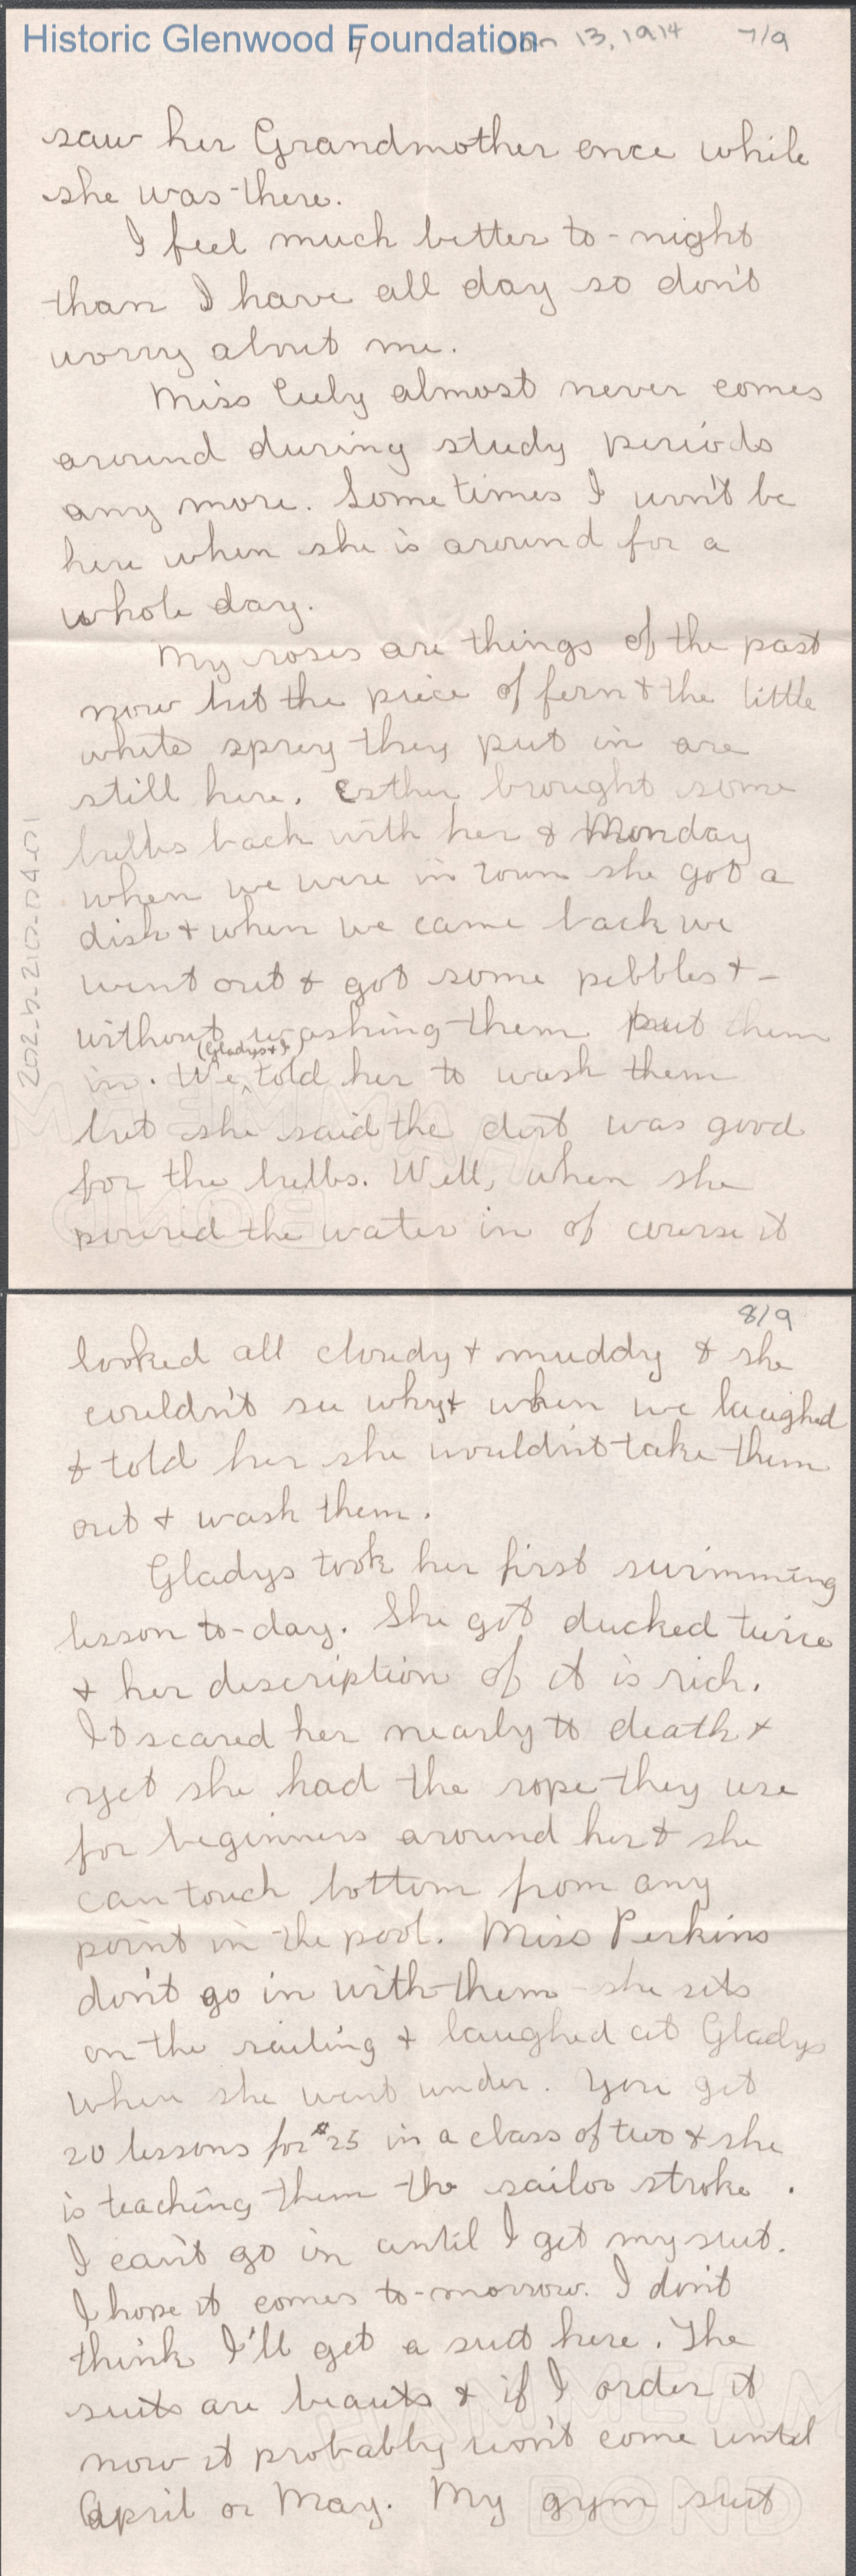 Historic Glenwood Foundation
7 Jan 13, 1914 7/9
saw her Grandmother once while
she was there.
I feel much better to-night
than I have all day so don't
worry about me.
Miss Euly almost never comes
around during study periods
any more. Sometimes I won't be
here when she is around for a
whole day.
My roses are things of the past
now but the piece of fern & the little
white sprey they put in are
still here. Esther brought some
bulbs back with her & Monday
when we were in town she got a
dish & when we came back we
went out & got some pebbles & -
without washing them put them
(Gladys & I)
in. We told her to wash them
but she said the dirt was good
for the bulbs. Well, when she
poured the water in of course it
2023-210-04-01
HAMMERMILL
BOND
8/9
looked all cloudy & muddy & she
couldn't see why & when we laughed
& told her she wouldn't take them
out & wash them.
Gladys took her first swimming
lesson to-day. She got ducked twice
& her description of it is rich.
It scared her nearly to death &
yet she had the rope they use
for beginners around her & she
can touch bottom from any
point in the pool. Miss Perkins
don't go in with them - she sits
on the railing & laughed at Gladys
when she went under. You get
20 lessons for $25 in a class of two & she
is teaching them the sailor stroke.
I can't go in until I get my suit.
I hope it comes to-morrow. I don't
think I'll get a suit here. The
suits are beauts & if I order it
now it probably won't come until
April or May. My gym suit
HAMMERM
BOND